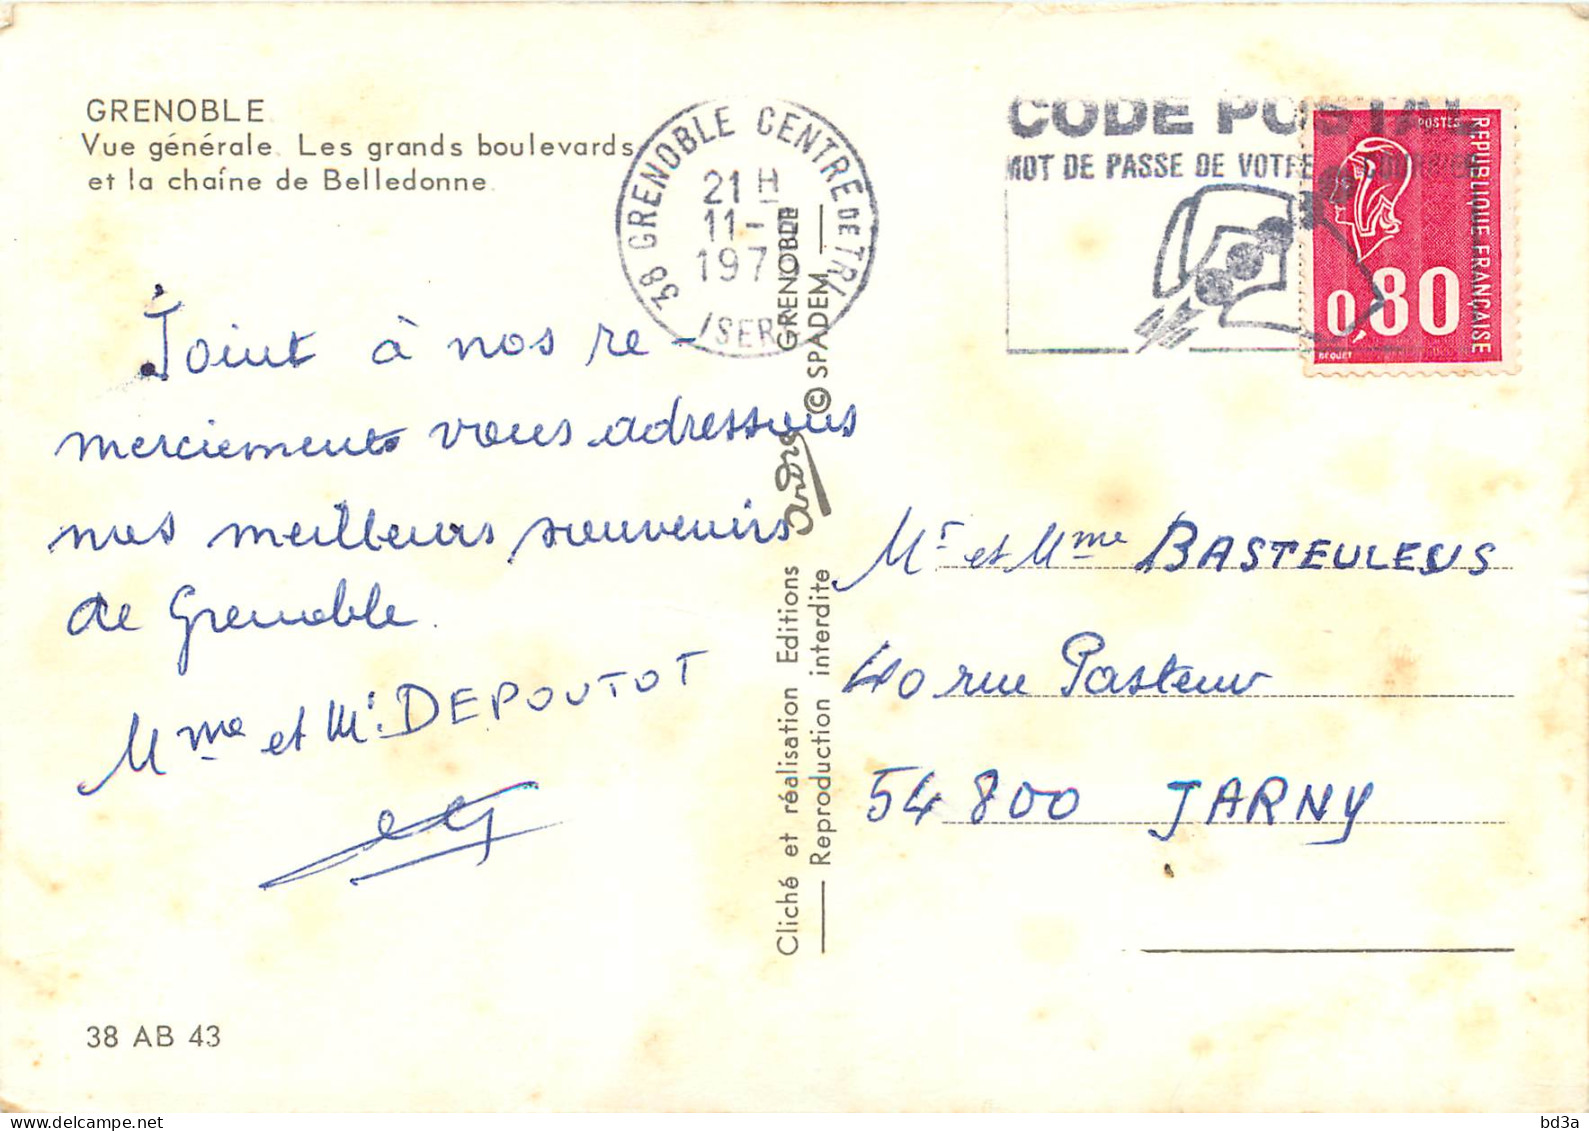 GRENOBLE
Vue générale. Les grands boulevards
et la chaîne de Belledonne.
38 GRENOBLE CENTRE DE TRI
21 H
11-
197
ISERE
CODE POSTAL
MOT DE PASSE DE VOTRE COURRIER
POSTES
REPUBLIQUE FRANÇAISE
0,80
BEQUET
Joint à nos re-
merciements vous adressons
nos meilleurs souvenirs
de Grenoble.
Mme et Mr. DEPOUTOT
Cliché et réalisation Editions André GRENOBLE
Reproduction interdite © SPADEM
Mr et Mme BASTEULEUS
40 rue Pasteur
54 800 JARNY
38 AB 43
bd3a
www.delcampe.net